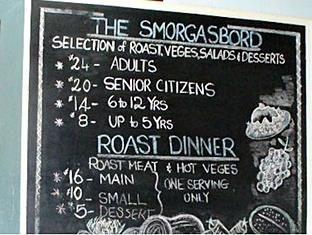 THE SMORGASBORD
SELECTION of ROAST, VEGES, SALADS & DESSERTS
* $24- ADULTS
* $20- SENIOR CITIZENS
* $14- 6 to 12 YRS
* $8- UP to 5 YRS
ROAST DINNER
ROAST MEAT & HOT VEGES
* $16- MAIN
* $10- SMALL
* $5- DESSERT
ONE SERVING
ONLY